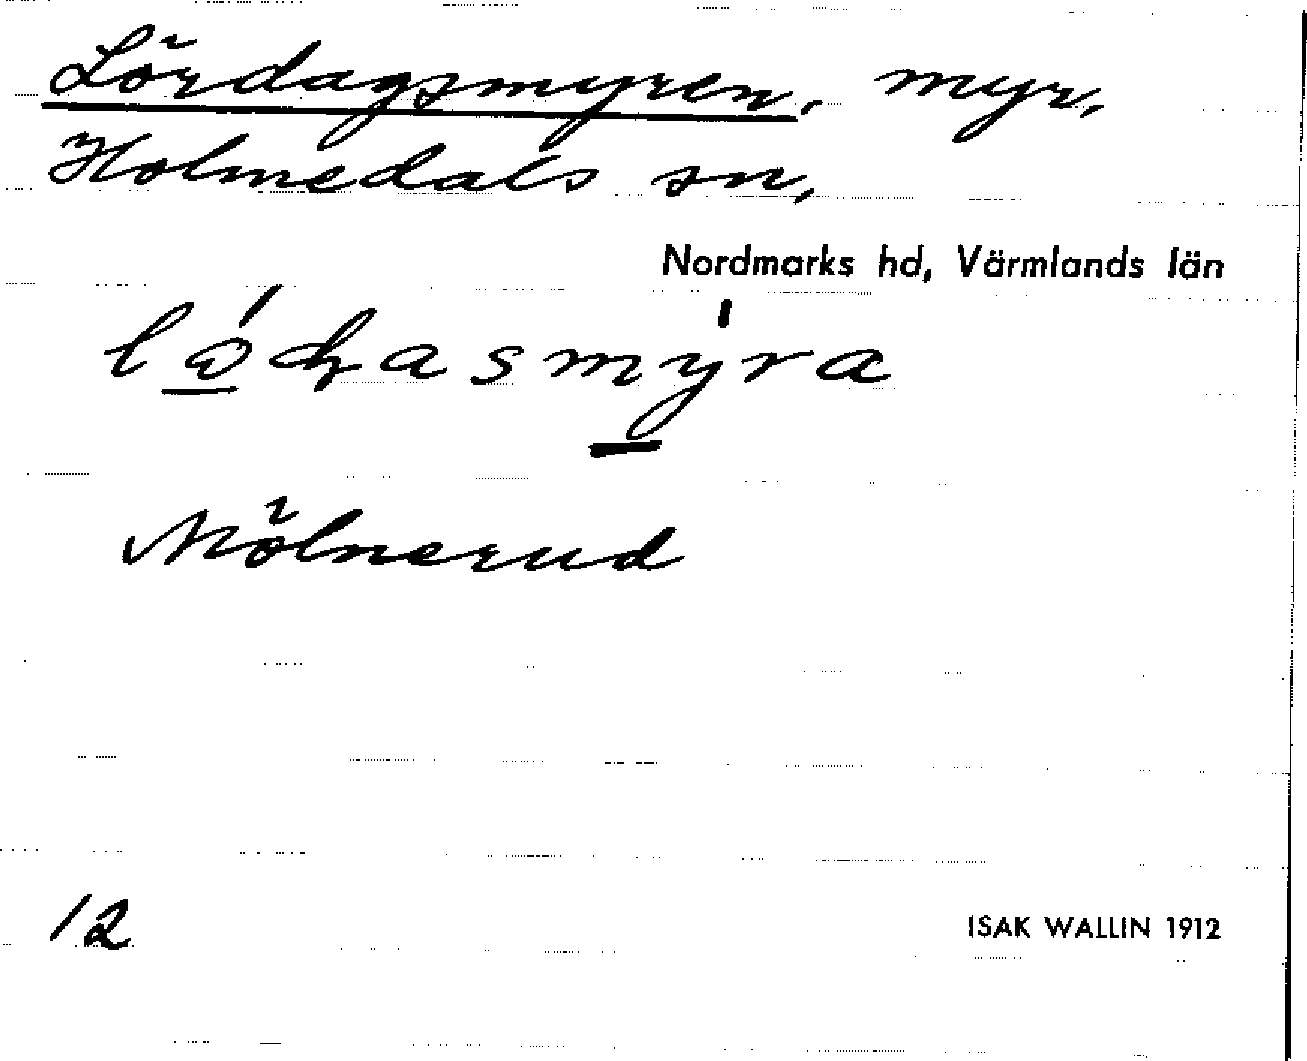 Lördagsmyren, myr,
Holmedals sn,
Nordmarks hd, Värmlands län
Mölnerud
12
ISAK WALLIN 1912